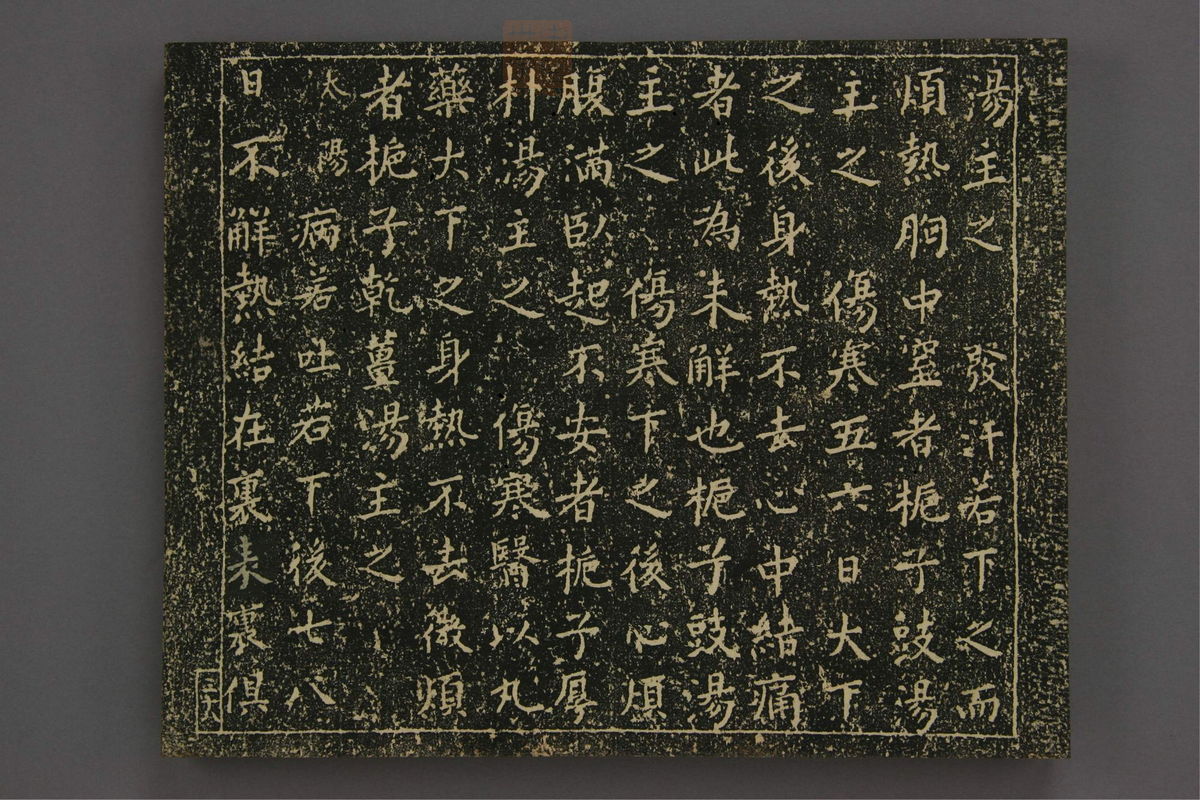 湯主之　發汗若下之而
煩熱胸中窒者梔子豉湯
主之　傷寒五六日大下
之後身熱不去心中結痛
者此為未解也梔子豉湯
主之　傷寒下之後心煩
腹滿臥起不安者梔子厚
朴湯主之　傷寒醫以丸
藥大下之身熱不去微煩
者梔子乾薑湯主之
太陽病若吐若下後七八
日不解熱結在裏表裏俱